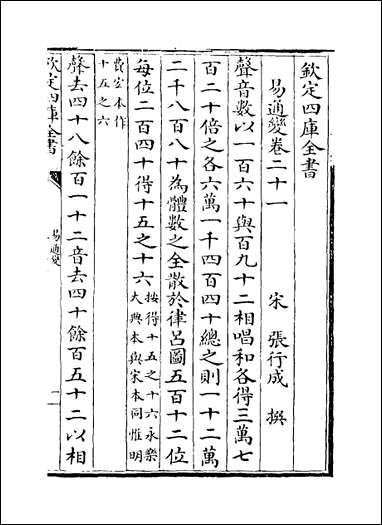 欽定四庫全書
易通變卷二十一
宋 張行成 撰
聲音數以一百六十與百九十二相唱和各得三萬七
百二十倍之各六萬一千四百四十總之則一十二萬
二千八百八十為體數之全散於律呂圖五百十二位
每位二百四十得十五之十六按得十五之十六永樂
大典本與宋本同惟明
費宏本作
十五之六
聲去四十八餘百一十二音去四十餘百五十二以相
欽定四庫全書
易通變
一